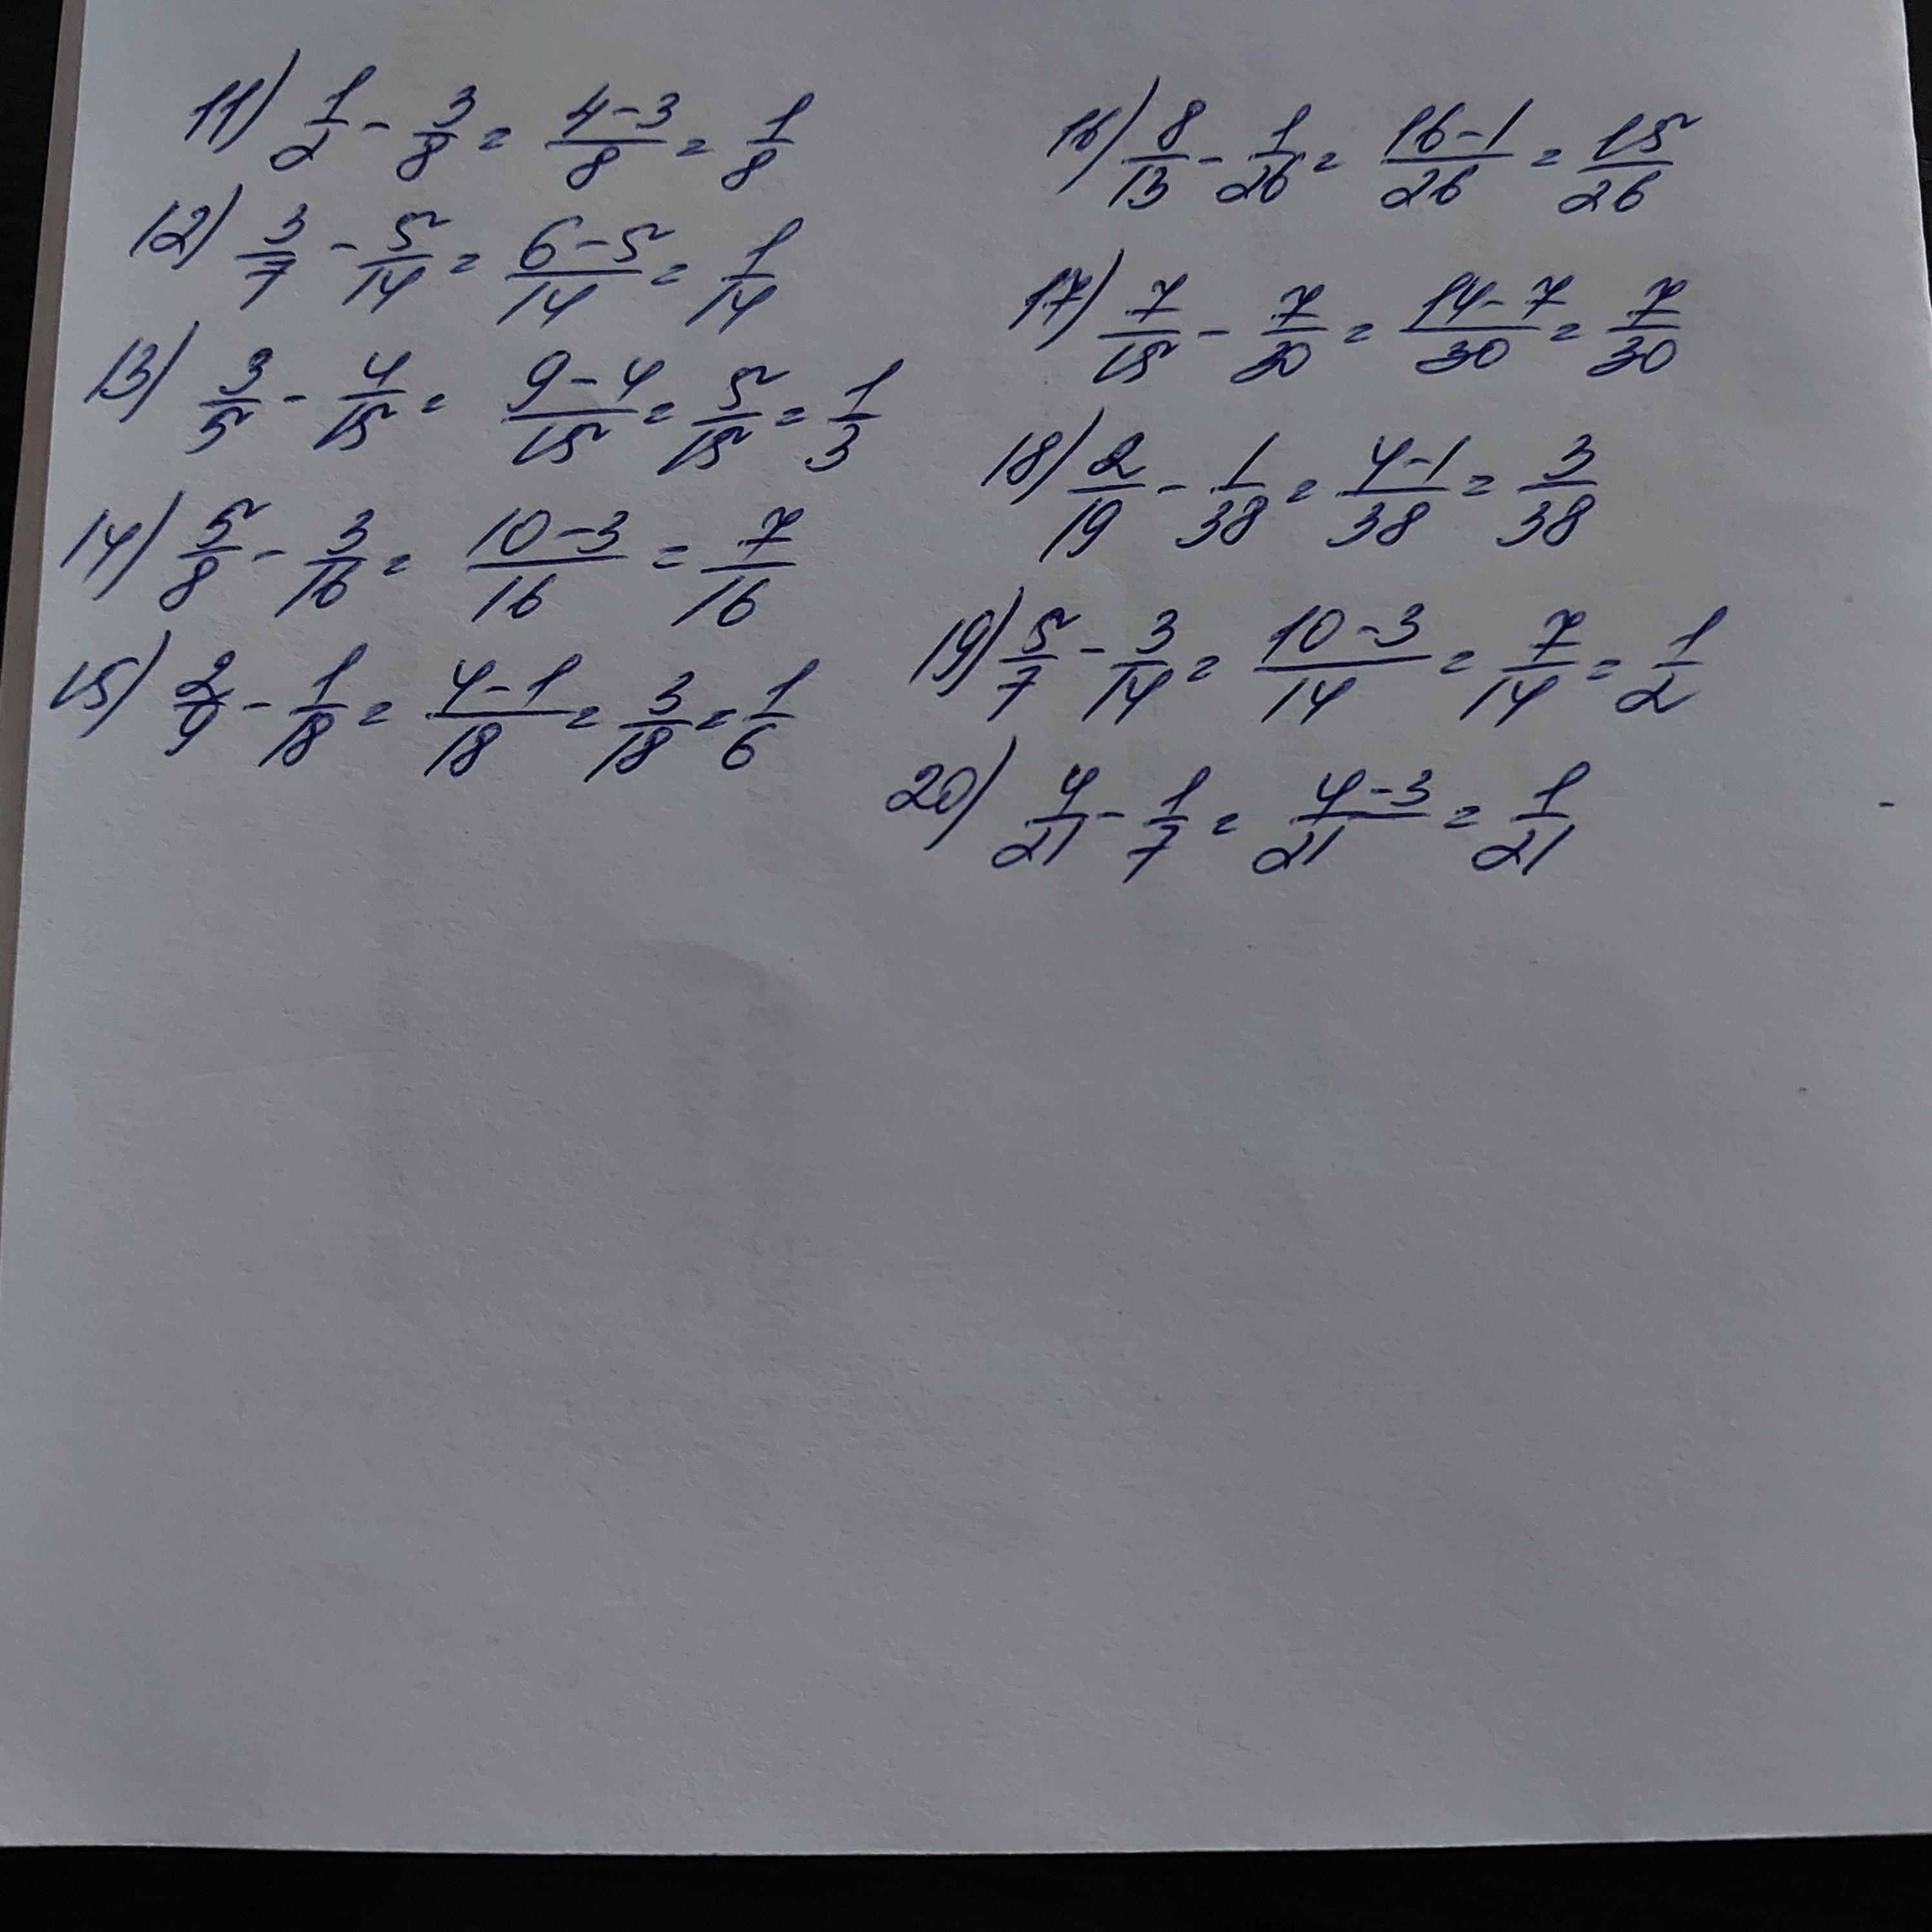 11) 1/2 - 3/8 = (4-3)/8 = 1/8
12) 3/7 - 5/14 = (6-5)/14 = 1/14
13) 3/5 - 4/15 = (9-4)/15 = 5/15 = 1/3
14) 5/8 - 3/16 = (10-3)/16 = 7/16
15) 2/9 - 1/18 = (4-1)/18 = 3/18 = 1/6
16) 8/13 - 1/26 = (16-1)/26 = 15/26
17) 7/15 - 7/30 = (14-7)/30 = 7/30
18) 2/19 - 1/38 = (4-1)/38 = 3/38
19) 5/7 - 3/14 = (10-3)/14 = 7/14 = 1/2
20) 4/21 - 1/7 = (4-3)/21 = 1/21